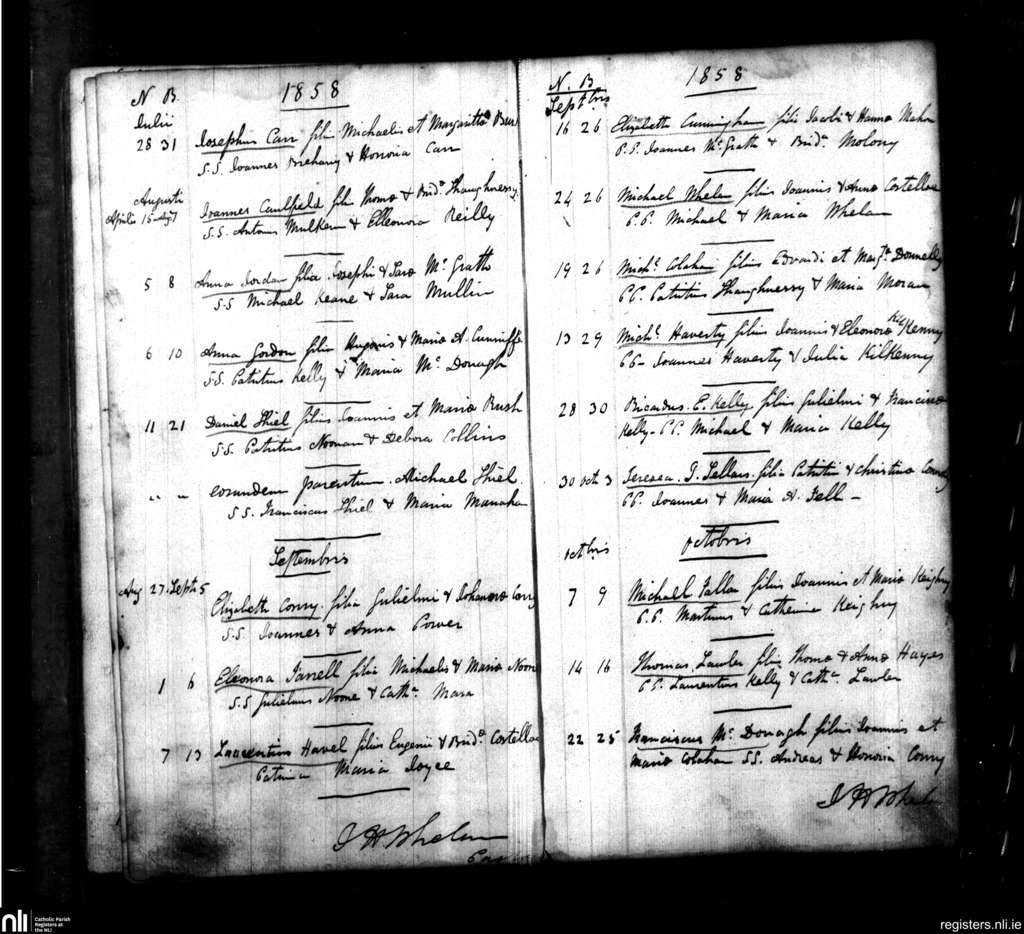 N B 1858
Julii
28 31 Josephus Carr filius Michaelis et Margarittæ
S.S. Joannes Brehany & Honoria Carr
Augusti
Aprilis 15 Augt 7 Joannes Caulfield filius Thomæ & Bridæ Shaughnessy
S.S. Antonius Mulkern & Elleonora Reilly
5 8 Anna Jordan filia Josephi & Saræ McGrath
S.S. Michael Keane & Sara Mullin
6 10 Anna Gordon filia Hugonis & Mariæ A. Cunniffe
S.S. Patritius Kelly & Maria McDonagh
11 21 Daniel Shiel filius Joannis et Mariæ Rush
S.S. Patritius Noonan & Debora Collins
" " eorundem parentum Michael Shiel
S.S. Franciscus Shiel & Maria
Septembris
Aug 27. Sept. 5 Elizabeth Conry filia Gulielmi & Johannæ Conry
S.S. Joannes & Anna Power
1 6 Eleonora Farrell filia Michaelis & Mariæ Noone
S.S. Gulielmus Noone & Cathe. Mara
7 13 Laurentius Havel filius Eugenii & Bridæ Costelloe
Patrina Maria Joyce
J H Whelan
N. B. 1858
Septbris
16 26 Elizabeth Cunningham filia Jacobi & Hannæ Mahon
P.P. Joannes McGrath & Brida Molony
24 26 Michael Whelan filius Joannis & Annæ Costelloe
P.P. Michael & Maria Whelan
19 26 Michl. Colahan filius Edvardi et Margtæ Donnelly
P.P. Patritius Shaughnessy & Maria Moran
13 29 Michl. Haverty filius Joannis & Eleonoræ KilKenny
P.P. Joannes Haverty & Julia KilKenny
28 30 Ricardus E. Kelly filius Gulielmi & Franciscæ
Kelly - P.P. Michael & Maria Kelly
30 Oct 3 Teresea J. Fallon filia Patritii & Christinæ Conry
P.P. Joannes & Maria A. Fell -
Octbris Octobris
7 9 Michael Fallon filius Joannis et Mariæ Keighry
P.P. Martinus & Catherina Keighry
14 16 Thomas Lawler filius Thomæ & Annæ Hayes
P.P. Laurentius Kelly & Cathe. Lawler
22 25 Franciscus McDonagh filius Joannis et
Mariæ Colahan S.S. Andreas & Honoria Conry
J H Whelan
nli Catholic Parish
Registers at
the NLI
registers.nli.ie